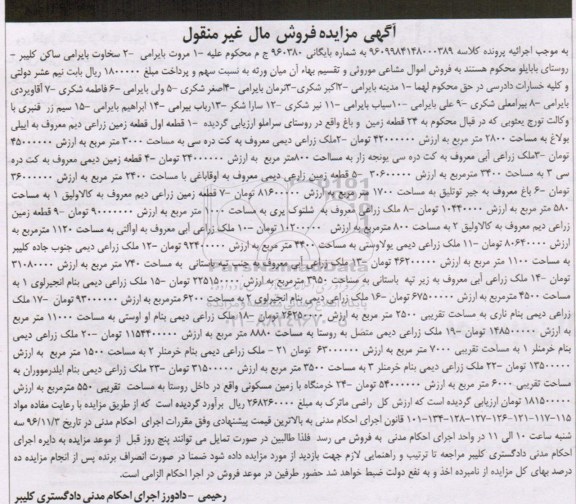 آگهی مزایده فروش مال غیر منقول
به موجب اجرائیه پرونده کلاسه ۹۶۰۹۹۸۴۱۴۸۰۰۰۳۸۹ به شماره بایگانی ۹۶۰۳۸۰ ج م محکوم علیه ۱- مروت بایرامی ۲- سخاوت بایرامی ساکن کلیبر -
روستای بابایلو محکوم هستند به فروش اموال مشاعی موروثی و تقسیم بهاء آن میان ورثه به نسبت سهم و پرداخت مبلغ ۱۸۰۰۰۰۰ ریال بابت نیم عشر دولتی
و کلیه خسارات دادرسی در حق محکوم لهما ۱- مدینه بایرامی ۲-اکبر شکری ۳-نرمان بایرامی ۴-اصغر شکری ۵- ولی بایرامی ۶- فاطمه شکری ۷- آقاویردی
بایرامی ۸- پیرامعلی شکری ۹- علی بایرامی ۱۰-سیاب بایرامی ۱۱- نیر شکری ۱۲- سارا شکر ۱۳-رباب بیرامی ۱۴- ابراهیم بایرامی ۱۵- سیم زر قنبری با
وکالت تورج یعئوبی که در قبال محکوم به ۲۴ قطعه زمین و باغ واقع در روستای سراملو ارزیابی گردیده ۱- قطعه اول قطعه زمین زراعی دیم معروف به ایبلی
بولاغ به مساحت ۲۸۰۰ متر به ارزش ۴۲۰۰۰۰۰ تومان ۲-ملک زراعی دیمی معروف به کت دره سی به مساحت ۳۰۰۰ متر مربع به ارزش ۴۵۰۰۰۰۰
تومان ۳-ملک زراعی آبی معروف به کت دره سی یونجه زار به مساحت ۸۰۰متر مربع به ارزش ۲۴۰۰۰۰۰ تومان ۴- قطعه زمین دیمی معروف به کت دره
سی ۳ به مساحت ۳۴۰۰ مترمربع به ارزش ۳۰۶۰۰۰۰ ۵- قطعه زمین زراعی دیمی معروف به اوقاباغی با مساحت ۲۴۰۰ متر مربع به ارزش ۳۶۰۰۰۰۰
تومان ۶- باغ معروف به جیر توتلیق به مساحت ۱۷۰۰ متر مربع به ارزش ۸۱۶۰۰۰۰ تومان ۷- قطعه زمین زراعی دیم معروف به کالاولیق ۱ به مساحت
۵۸۰ متر مربع به ارزش ۱۰۴۴۰۰۰ تومان ۸- ملک زراعی معروف به شلتوک یری به مساحت ۱۰۰۰ متر مربع به ارزش ۹۰۰۰۰۰۰ تومان ۹- قطعه زمین
زراعی دیم معروف به کالاولیق ۲ به مساحت ۸۰۰ مترمربع به ارزش ۱۰۲۰۰۰۰ تومان ۱۰- ملک زراعی آبی معروف به اوآلتی به مساحت ۱۱۲۰ مترمربع به
ارزش ۸۰۶۴۰۰۰ تومان ۱۱- ملک زراعی دیمی یولاوستی به مساحت ۴۴۰۰ متر مربع به ارزش ۹۲۴۰۰۰۰ تومان ۱۲- ملک زراعی دیمی جنوب جاده کلیبر
به مساحت ۱۱۰۰ متر مربع به ارزش ۴۶۲۰۰۰۰ تومان ۱۳- ملک زراعی آبی معروف به جنب تپه باستانی به مساحت ۷۴۰ متر مربع به ارزش ۳۱۰۸۰۰۰
تومان ۱۴- ملک زراعی آبی معروف به زیر تپه باستانی به مساحت ۳۹۵۰ مترمربع به ارزش ۲۲۵۱۵۰۰۰ تومان ۱۵- ملک زراعی دیمی بنام انجیراوی ۱ به
مساحت ۴۵۰۰ مترمربع به ارزش ۶۷۵۰۰۰۰ تومان ۱۶- ملک زراعی دیمی بنام انجیراوی ۲ به مساحت ۶۲۰۰ مترمربع به ارزش ۹۳۰۰۰۰۰ تومان ۱۷- ملک
زراعی دیمی بنام ناری به مساحت تقریبی ۲۵۰۰ متر به ارزش ۲۶۲۵۰۰۰ تومان ۱۸- ملک زراعی دیمی بنام او اوستی به مساحت ۱۱۰۰۰ متر مربع
به ارزش ۱۴۸۵۰۰۰۰ تومان ۱۹- ملک زراعی دیمی متصل به روستا به مساحت ۸۸۸۰ متر مربع به ارزش ۱۱۵۴۴۰۰۰ تومان ۲۰- ملک زراعی دیمی
بنام خرمنلر ۱ به مساحت تقریبی ۷۰۰۰ متر مربع به ارزش ۶۳۰۰۰۰۰ تومان ۲۱ - ملک زراعی دیمی بنام خرمنلر ۲ به مساحت ۱۵۰۰ متر مربع به ارزش
۱۳۵۰۰۰۰ تومان ۲۲- ملک زراعی دیمی بنام خرمنلر ۳ به مساحت ۳۵۰۰ متر مربع به ارزش ۳۱۵۰۰۰۰ تومان ۲۳- ملک زراعی دیمی بنام ایلدرمووران به
مساحت تقریبی ۶۰۰۰ متر مربع به ارزش ۵۴۰۰۰۰۰ تومان ۲۴- خرمنگاه با زمین مسکونی واقع در داخل روستا به مساحت تقریبی ۵۵۰ مترمربع به ارزش
۱۸۱۵۰۰۰۰ تومان ارزیابی گردیده است که ارزش کل راضی ماترک به مبلغ ۲۶۸۲۶۰۰۰۰ ریال برآورد گردیده است که از طریق مزایده با رعایت مفاده مواد
۱۱۵-۱۱۷-۱۲۱-۱۲۶-۱۲۷-۱۲۸-۱۳۴-۱۰۱ قانون اجرای احکام مدنی به بالاترین قیمت پیشنهادی وفق مقررات اجرای احکام مدنی در تاریخ ۹۶/۱۱/۳ سه
شنبه ساعت ۱۰ الی ۱۱ در واحد اجرای احکام مدنی به فروش می رسد فلذا طالبین در صورت تمایل می توانند پنج روز قبل از موعد مزایده به دایره اجرای
احکام مدنی دادگستری کلیبر مراجعه تا ترتیب و راهنمایی لازم جهت بازدید از مورد مزایده داده شود ضمنا در صورت انصراف برنده پس از انجام مزایده ده
درصد بهای کل مزایده از نامبرده اخذ و به نفع دولت ضبط خواهد شد حضور طرفین در موعد فروش در اجرا احکام الزامی است.
رحیمی - دادورز اجرای احکام مدنی دادگستری کلیبر